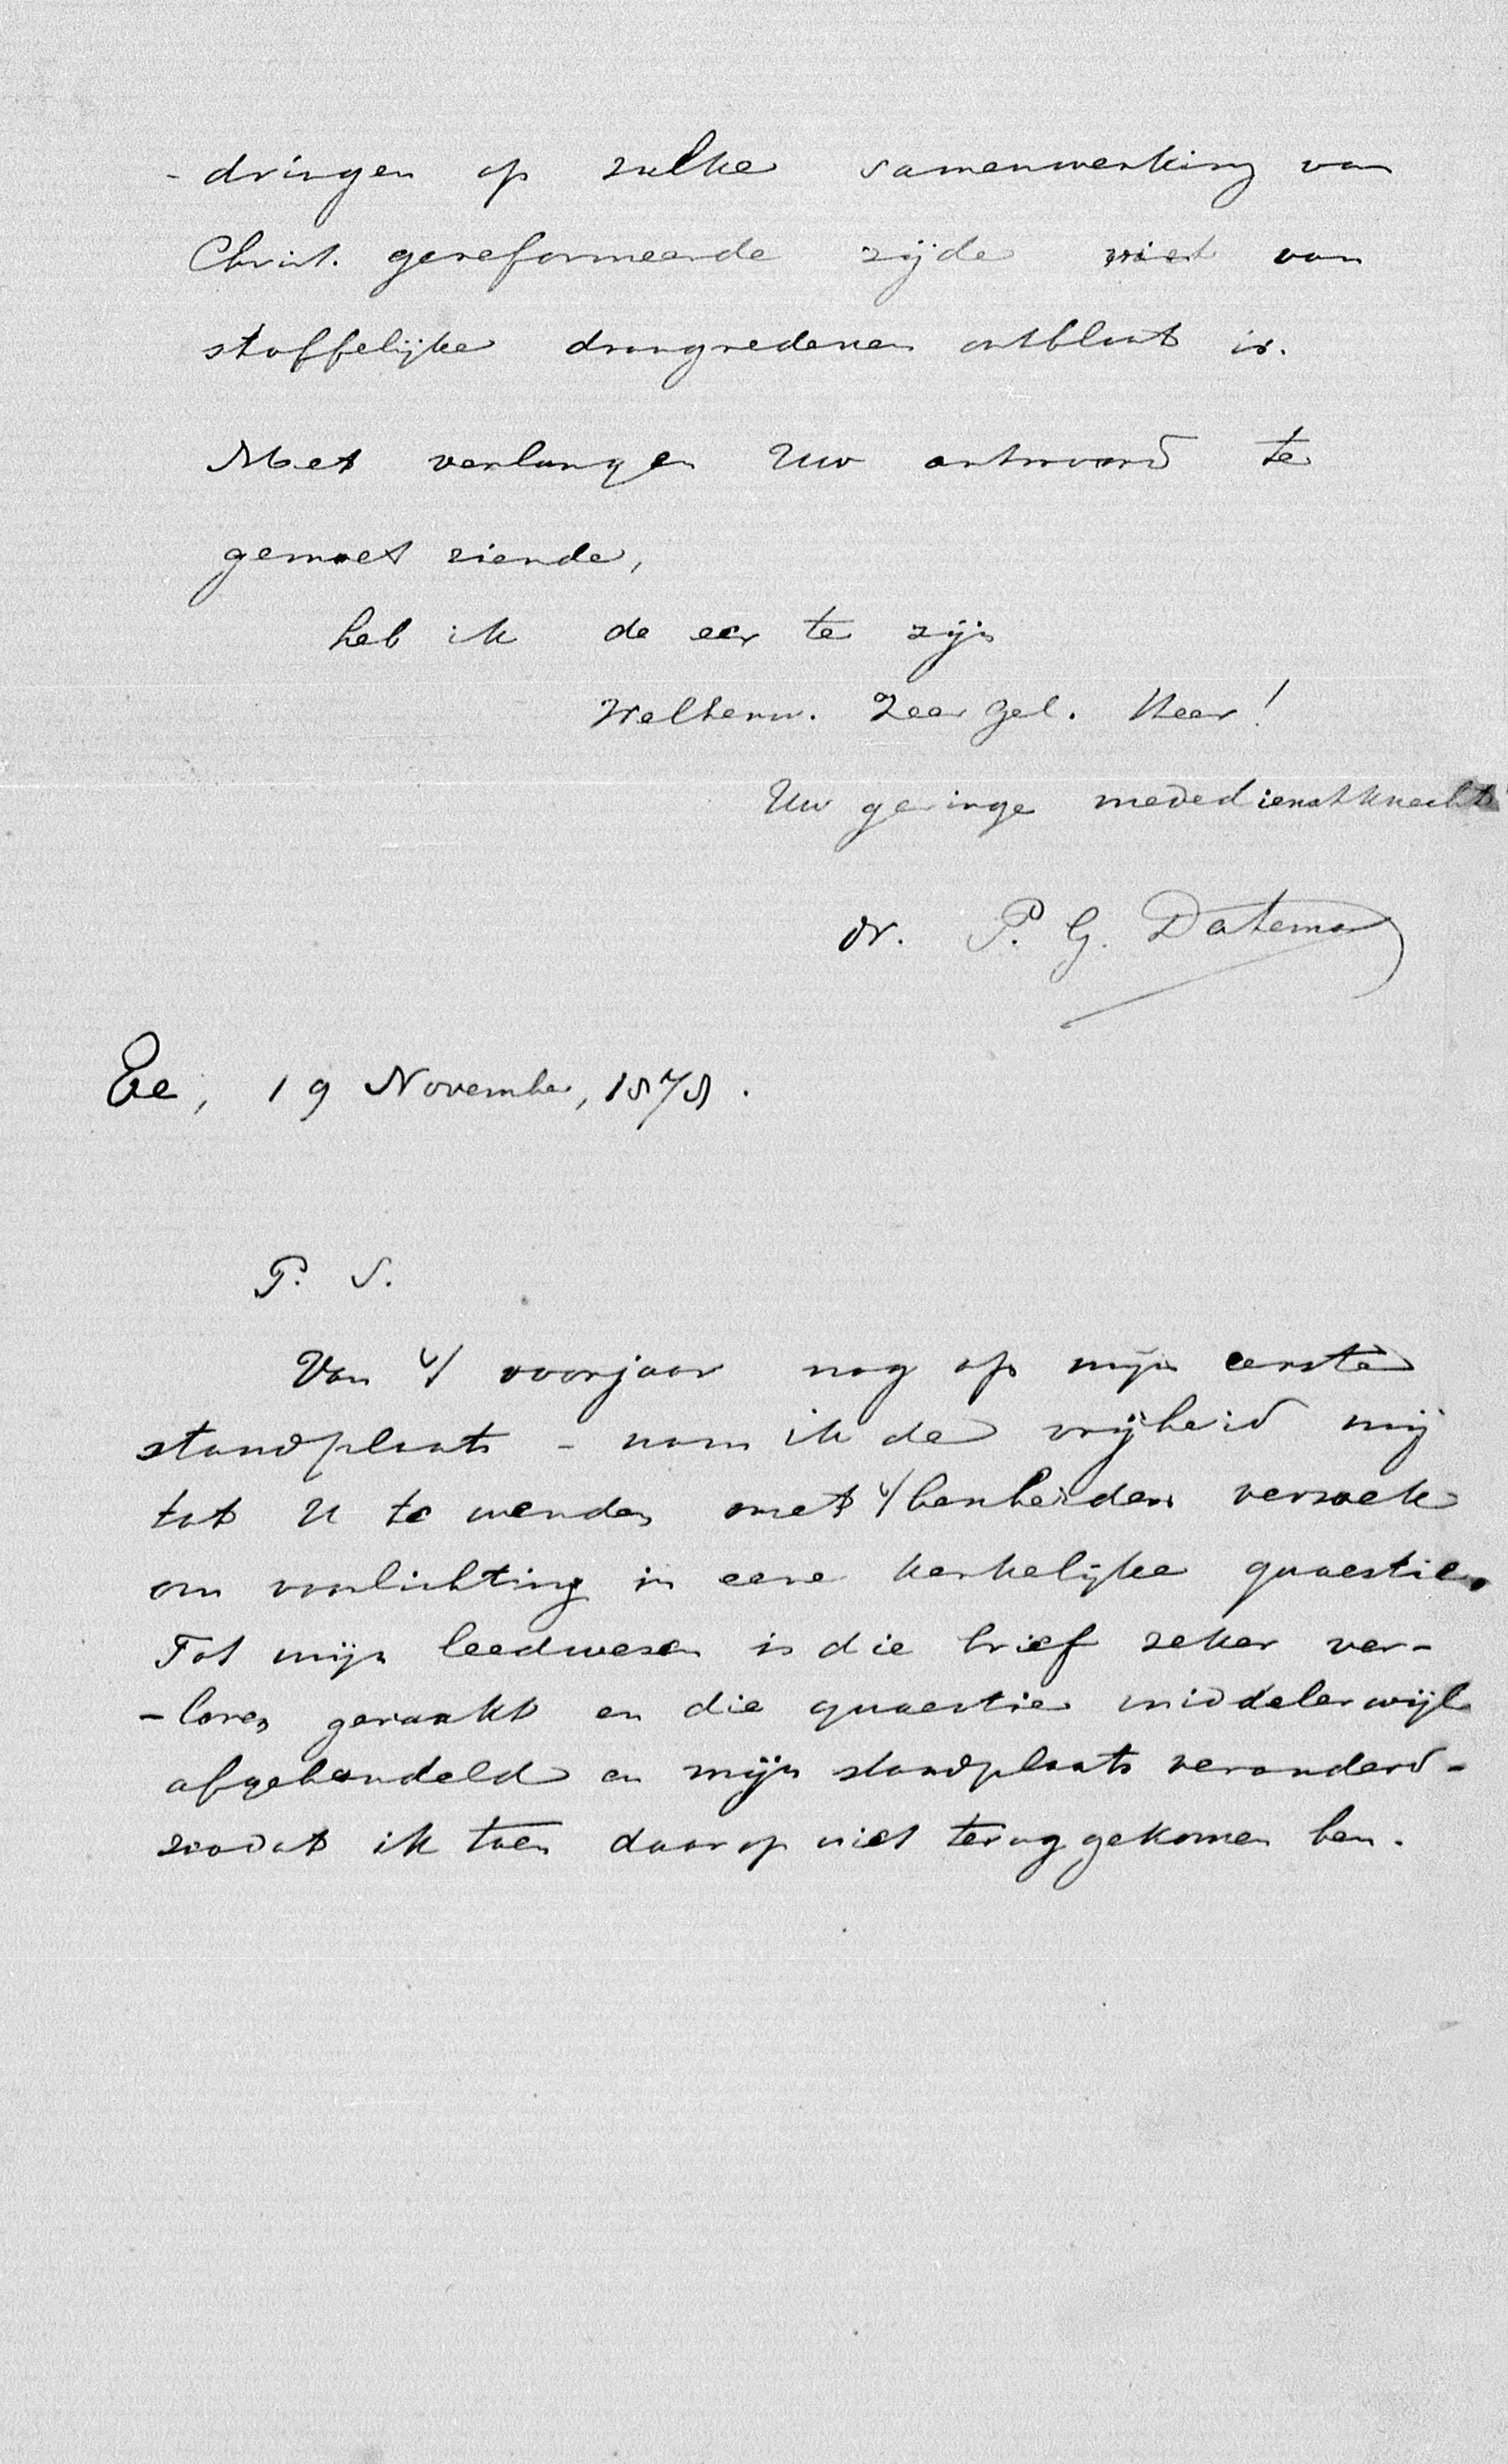 - dringen op zulke samenwerking van
Christ. gereformeerde zijde niet van
stoffelijke drangredenen ontbloot is.
Met verlangen Uw antwoord te
gemoet ziende,
heb ik de eer te zijn
Weleerw. Zeer Gel. Heer!
Uw geringe mededienstknecht
Dr. P. G. Datema
Ee, 19 November, 1878.
P. S.
Van 't voorjaar nog op mijn eerste
standplaats - nam ik de vrijheid mij
tot U te wenden met 't bescheiden verzoek
om voorlichting in eene kerkelijke quaestie.
Tot mijn leedwezen is die brief zeker ver-
- loren geraakt en die quaestie middelerwijl
afgehandeld en mijn standplaats veranderd -
zoodat ik toen daarop niet teruggekomen ben.